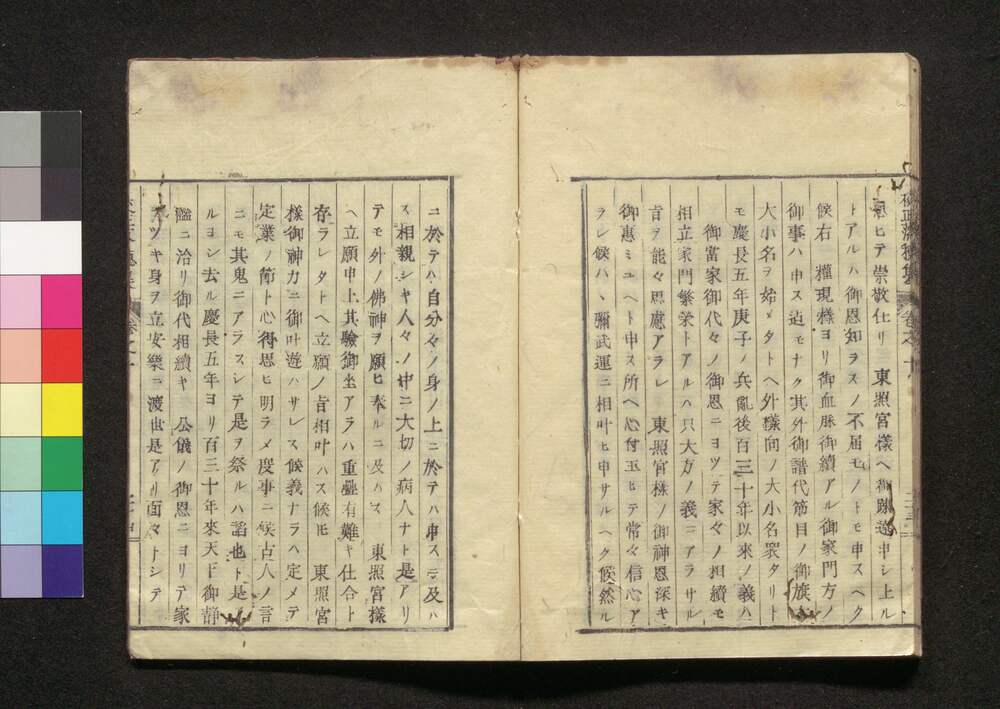 忌ヒテ崇敬仕リ　東照宮樣ヘ御疎遠申シ上ル
トアルハ御恩知ラスノ不屆モノトモ申スヘク
候右　權現樣ヨリ御血脉御續アル御家門方ノ
御事ハ申ス迠モナク其外御譜代筋目ノ御旗本
大小名ヲ始メタトヘ外樣向ノ大小名衆タリト
モ慶長五年庚子ノ兵亂後百三十年以來ノ義ハ
御當家御代々ノ御恩ニヨツテ家々ノ相續モ
相立家門繁榮トアルハ只大方ノ義ニアラサル
旨ヲ能々思慮アラレ　東照宮樣ノ御神恩深キ
御惠ミユヘト申ス所ヘ心付玉ヒテ常々信心ア
ラレ候ハヽ彌武運ニ相叶ヒ申サルヘク候然ル
ニ於テハ自分々ノ身ノ上ニ於テハ申スニ及ハ
ス相親シキ人々ノ中ニ大切ノ病人ナト是アリ
テモ外ノ佛神ヲ願ヒ奉ルニ及ハス　東照宮樣
ヘ立願申上其驗御坐アラハ重疊有難キ仕合ト
存ラレタトヘ立願ノ旨相叶ハス候モ　東照宮
樣御神力ニ御叶遊ハサレス候義ナラハ定メテ
定業ノ節ト心得思ヒ明ラメ度事ニ候古人ノ言
ニモ其鬼ニアラスシテ是ヲ祭ルハ謟也ト是ア
ルヨシ去ル慶長五年ヨリ百三十年來天下御靜
謐ニ治リ御代相續キ　公儀ノ御恩ニヨリテ家
ツキ身ヲ立安樂ニ渡世是アリ面々トシテ